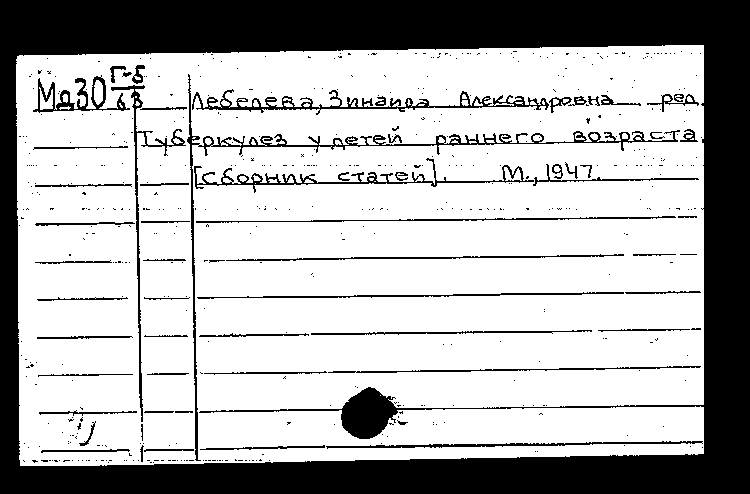 Мд30 Г-5/63 Лебедева, Зинаида Александровна ред.
Туберкулез у детей раннего возраста.
[Сборник статей]. М., 1947.